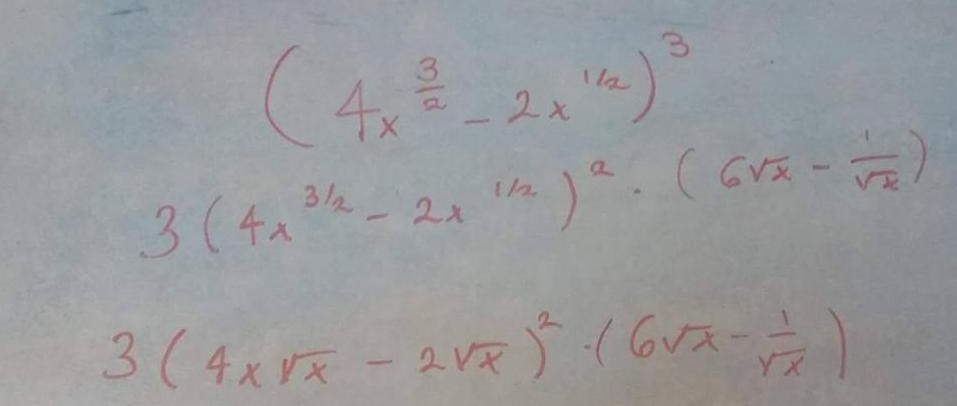 (4x^{3/2} - 2x^{1/2})^3
3(4x^{3/2} - 2x^{1/2})^2 · (6√x - 1/√x)
3(4x√x - 2√x)^2 · (6√x - 1/√x)